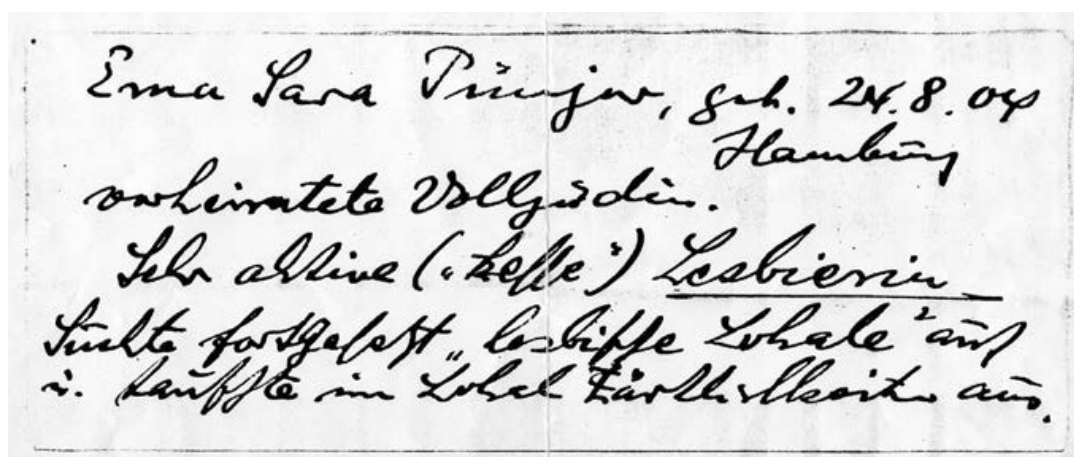 Erna Sara Pünjer, geb. 24.8.04
Hamburg
verheiratete Volljüdin.
Sehr aktive („kesse“) Lesbierin
Suchte fortgesetzt „lesbische Lokale“ auf
u. tauschte im Lokal Zärtlichkeiten aus.